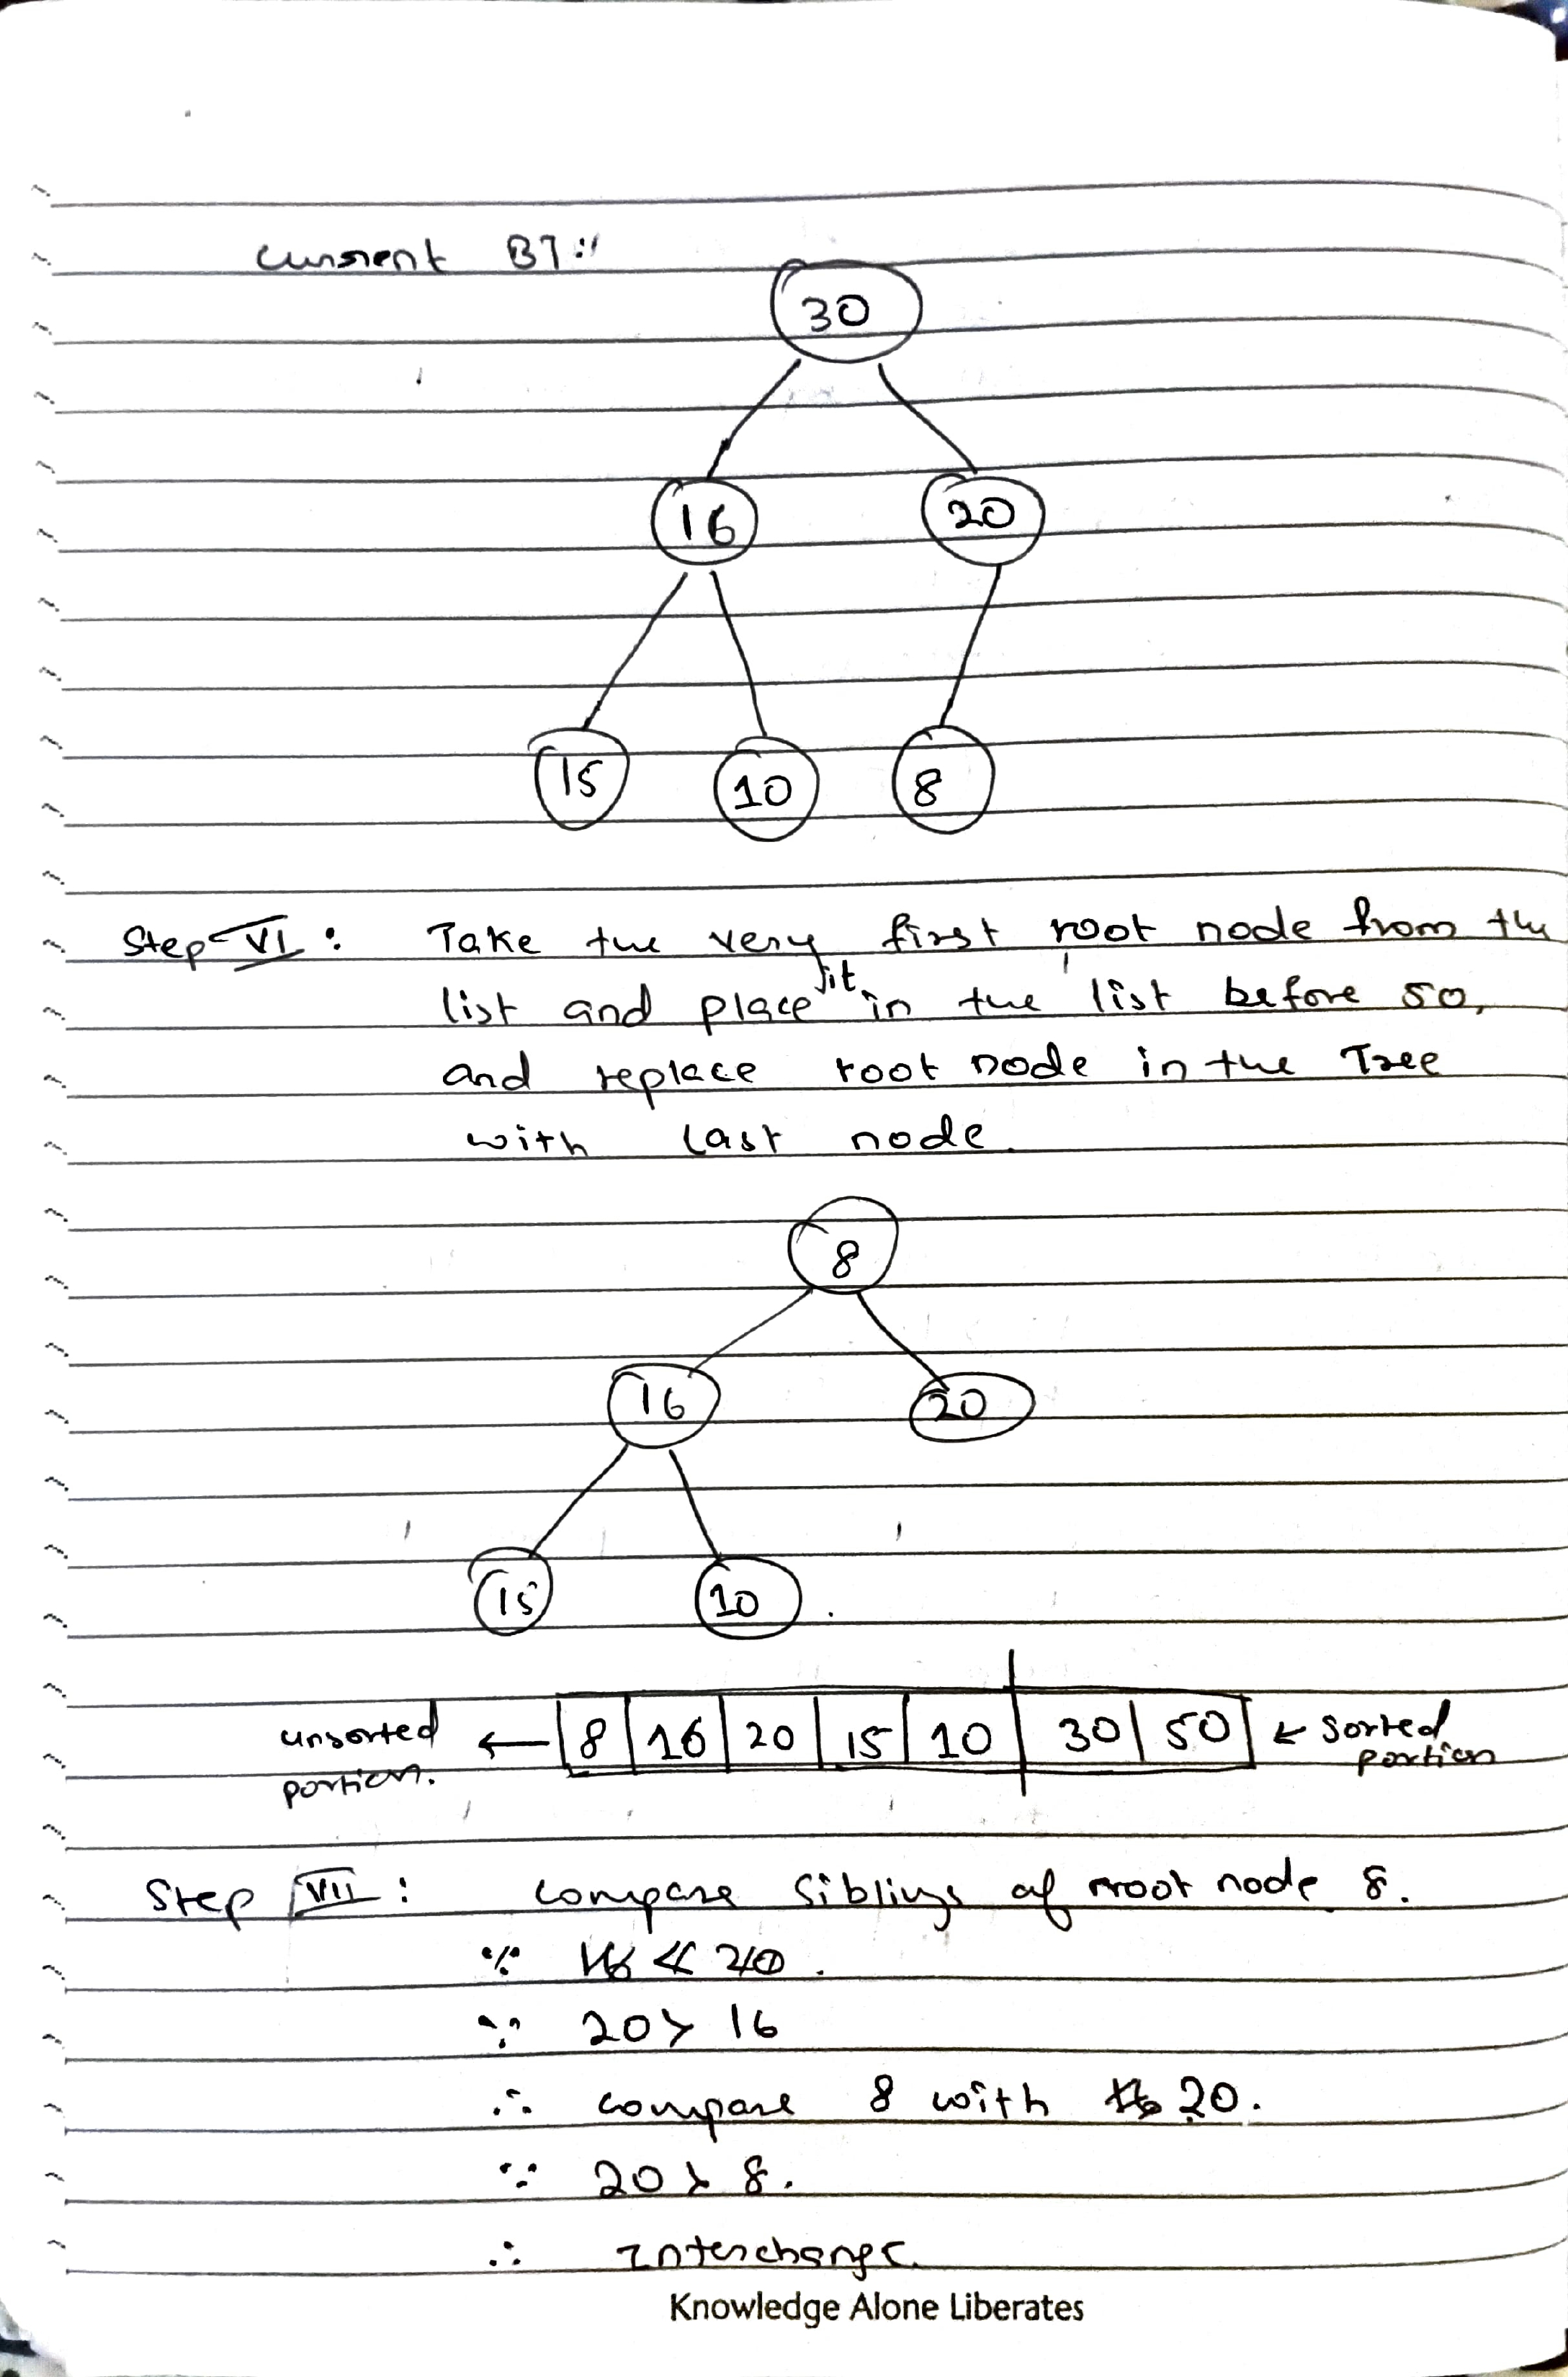 current BT:
30
16 20
15 10 8
Step VI : Take the very first root node from the
list and place it in the list before 50,
and replace root node in the Tree
with last node.
8
16 20
15 10
unsorted portion. ← 8 16 20 15 10 30 50 ← sorted portion
Step VII : compare siblings of root node 8.
∵ 16 < 20.
∵ 20 > 16
∴ compare 8 with 20.
∵ 20 > 8.
∴ Interchange.
Knowledge Alone Liberates